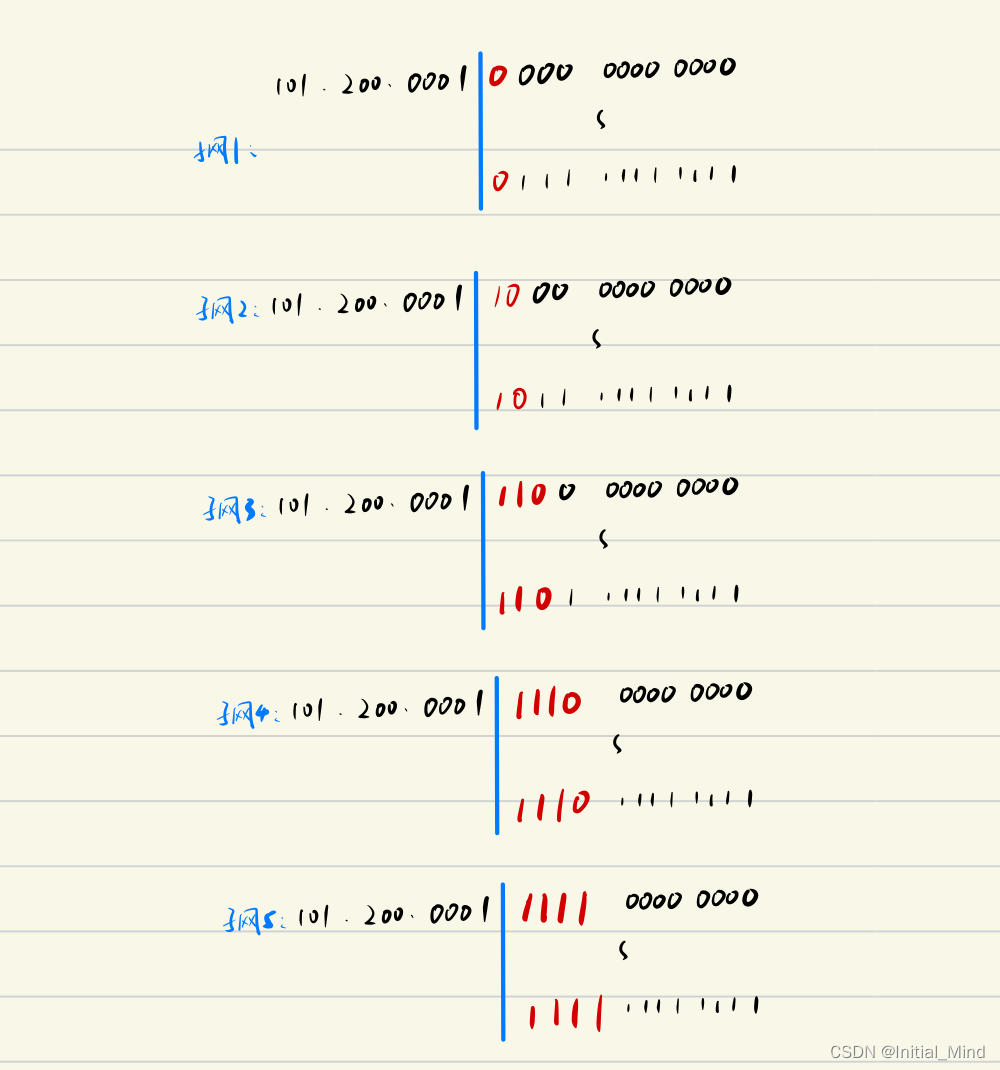 101 . 200. 0001 0 000 0000 0000
子网1:
0 1 1 1 1111 1111
子网2: 101 . 200. 0001 10 00 0000 0000
1 0 1 1 1111 1111
子网3: 101 . 200. 0001 110 0 0000 0000
110 1 1111 1111
子网4: 101 . 200. 0001 1110 0000 0000
1110 1111 1111
子网5: 101 . 200. 0001 1111 0000 0000
1111 1111 1111
CSDN @Initial_Mind